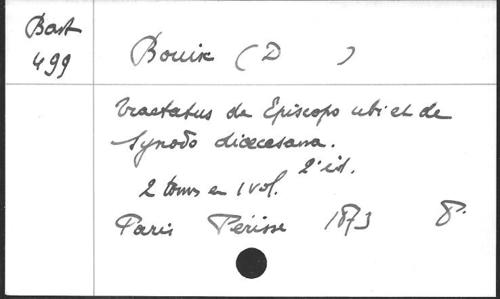 Bast
499
Bouix (D )
Tractatus de Episcopo ubi et de
Synodo diocesana.
2 toms en 1 vol. 2e éd.
Paris Périsse 1873 8°.